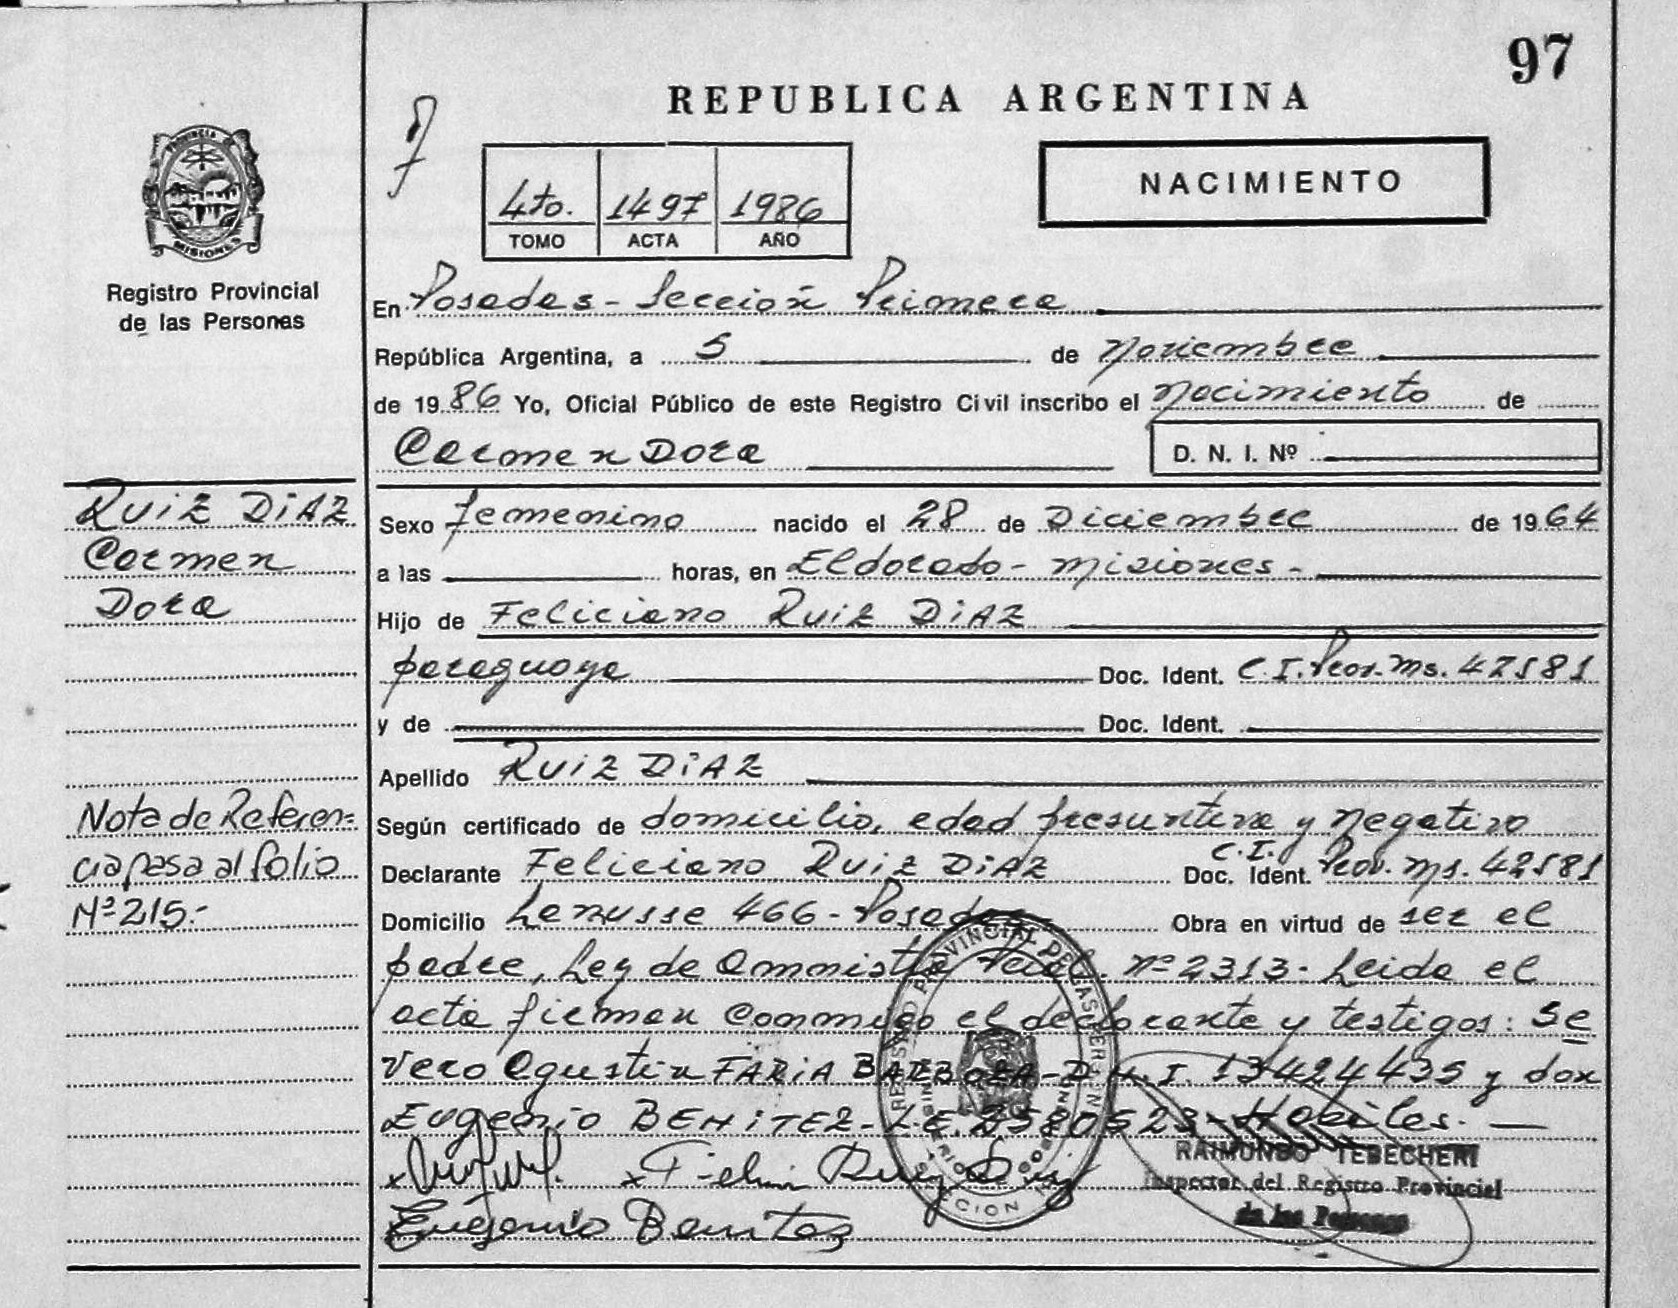 97
REPUBLICA ARGENTINA
NACIMIENTO
4to. 1497 1986
TOMO ACTA AÑO
PROVINCIA DE MISIONES
Registro Provincial
de las Personas
En Posadas - Sección Primera
República Argentina, a 5 de Noviembre
de 1986 Yo, Oficial Público de este Registro Civil inscribo el Nacimiento de
Carmen Dora D. N. I. Nº
RUIZ DIAZ
Carmen
Dora
Sexo femenino nacido el 28 de Diciembre de 1964
a las horas, en Eldorado - Misiones -
Hijo de Feliciano RUIZ DIAZ
paraguaya Doc. Ident. C.I. Prov. Ms. 42581
y de Doc. Ident.
Apellido RUIZ DIAZ
Nota de Referen=
cia pasa al folio
Nº 215.-
Según certificado de domicilio, edad presuntiva y negativo
Declarante Feliciano RUIZ DIAZ Doc. Ident. C.I. Prov. Ms. 42581
Domicilio Lanusse 466 - Posadas - Obra en virtud de ser el
padre, Ley de Ammistía Prcial. nº 2313 - Leida el
acta firman conmigo el declarante y testigos: Se
vero Agustin FARIA BARBOZA - D.N.I. 13424435 y don
Eugenio BENITEZ - L.E. 2580523 - Hábiles. -
RAIMUNDO TEBECHERI
Inspector del Registro Provincial
de las Personas
Eugenio Benitez